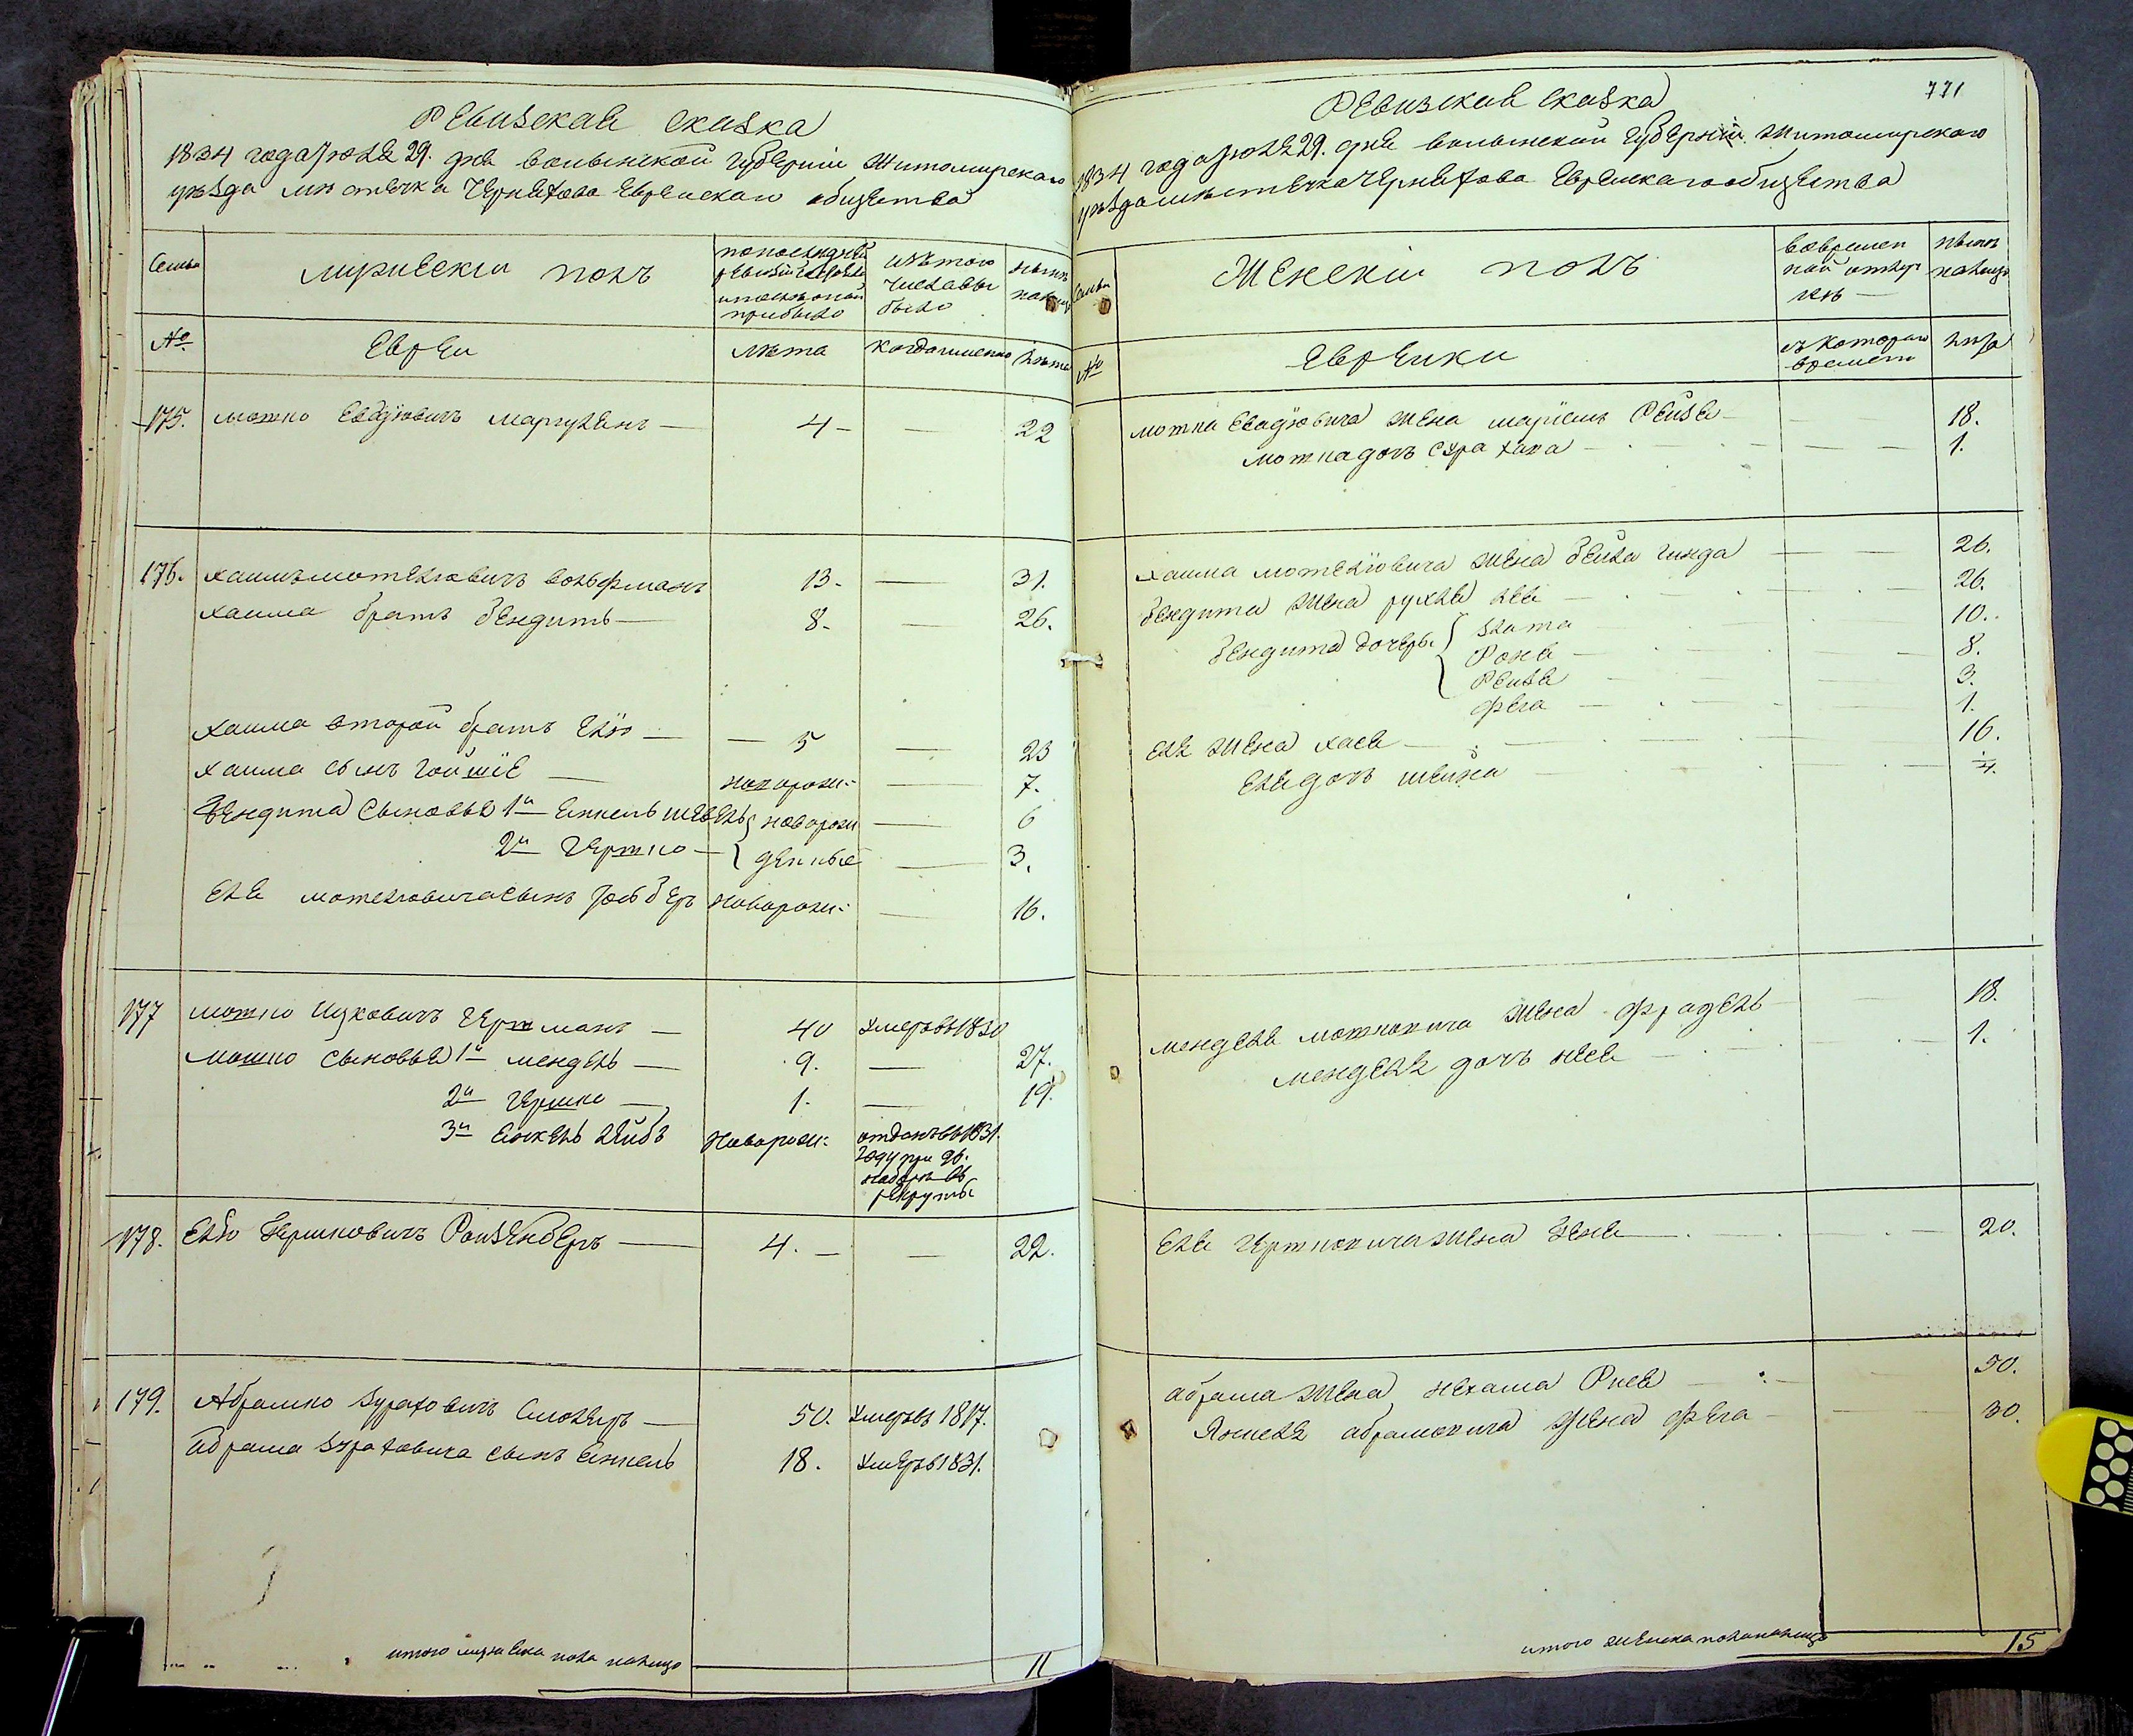 Ревизская сказка
1834 года Июля 29. дня волынской губернии Житомирского
уѣзда мѣстечка Черняхова Еврейскаго общества
Семьи
мужескии полъ
по последней ревизии состояло и после оной прибыло
изъ того числа выбыло
нынѣ налицо
№
Евреи
лѣта
когда именно
лѣта
175. мотко Евадіовичъ маргулѣнъ — 4 — — 22
176. хаимъ мотелювичъ вольфманъ 13. — 31.
хаима братъ бендитъ — 8. — 26.
хаима второй братъ Еліо — 5 — 23
хаима сынъ гойшіе — новорож: — 7.
бендита сыновья 1й Янкель новорож — 6
2й Гершко — денные — 3.
Еля мотелювича сынъ новорож: — 16.
177 мошко Ицковичъ Гершманъ — 40 умеръ въ 1830
мошко сыновья 1й мендель — 9. — 27.
2й Гершко — 1. — 19.
3й Янкель Лейбъ новорож: отданъ въ 1831.
году при 96.
наборѣ въ
рекруты
178. Еліо Гершковичъ Ройзенберъ — 4. — — 22.
179. Абрамко Зураховичъ Смоляръ — 50. умеръ въ 1817.
абрама Зураховича сынъ Янкель 18. умеръ 1831.
итого мужеска пола налицо 11
771
Ревизская сказка
1834 года Июля 29. дня волынской губерніи Житомирского
уѣзда мѣстечка Черняхова Еврейскаго общества
Семьи
Женскіи полъ
во временной отлучкѣ —
нынѣ налицо
№
Еврейки
съ котораго времени
лѣта
мотка Евадіовича жена маріемъ Рейзя — 18.
мотка дочь Сура хана — 1.
хаима мотелювича жена бейла гинда — 26.
бендита жена рухля лея — 26.
бендита дочери злата 10.
Роня — 8.
Рейзя 3.
фега — 1.
Еля жена хася — 16.
Еля дочь шейна 4.
менделя мошковича жена фрадель 18.
менделя дочь нися — 1.
Еля Гершковича жена Женя 20.
абрама жена нехама Рися — 50.
Янкеля абрамовича жена фега — 30.
итого женска пола налицо 15